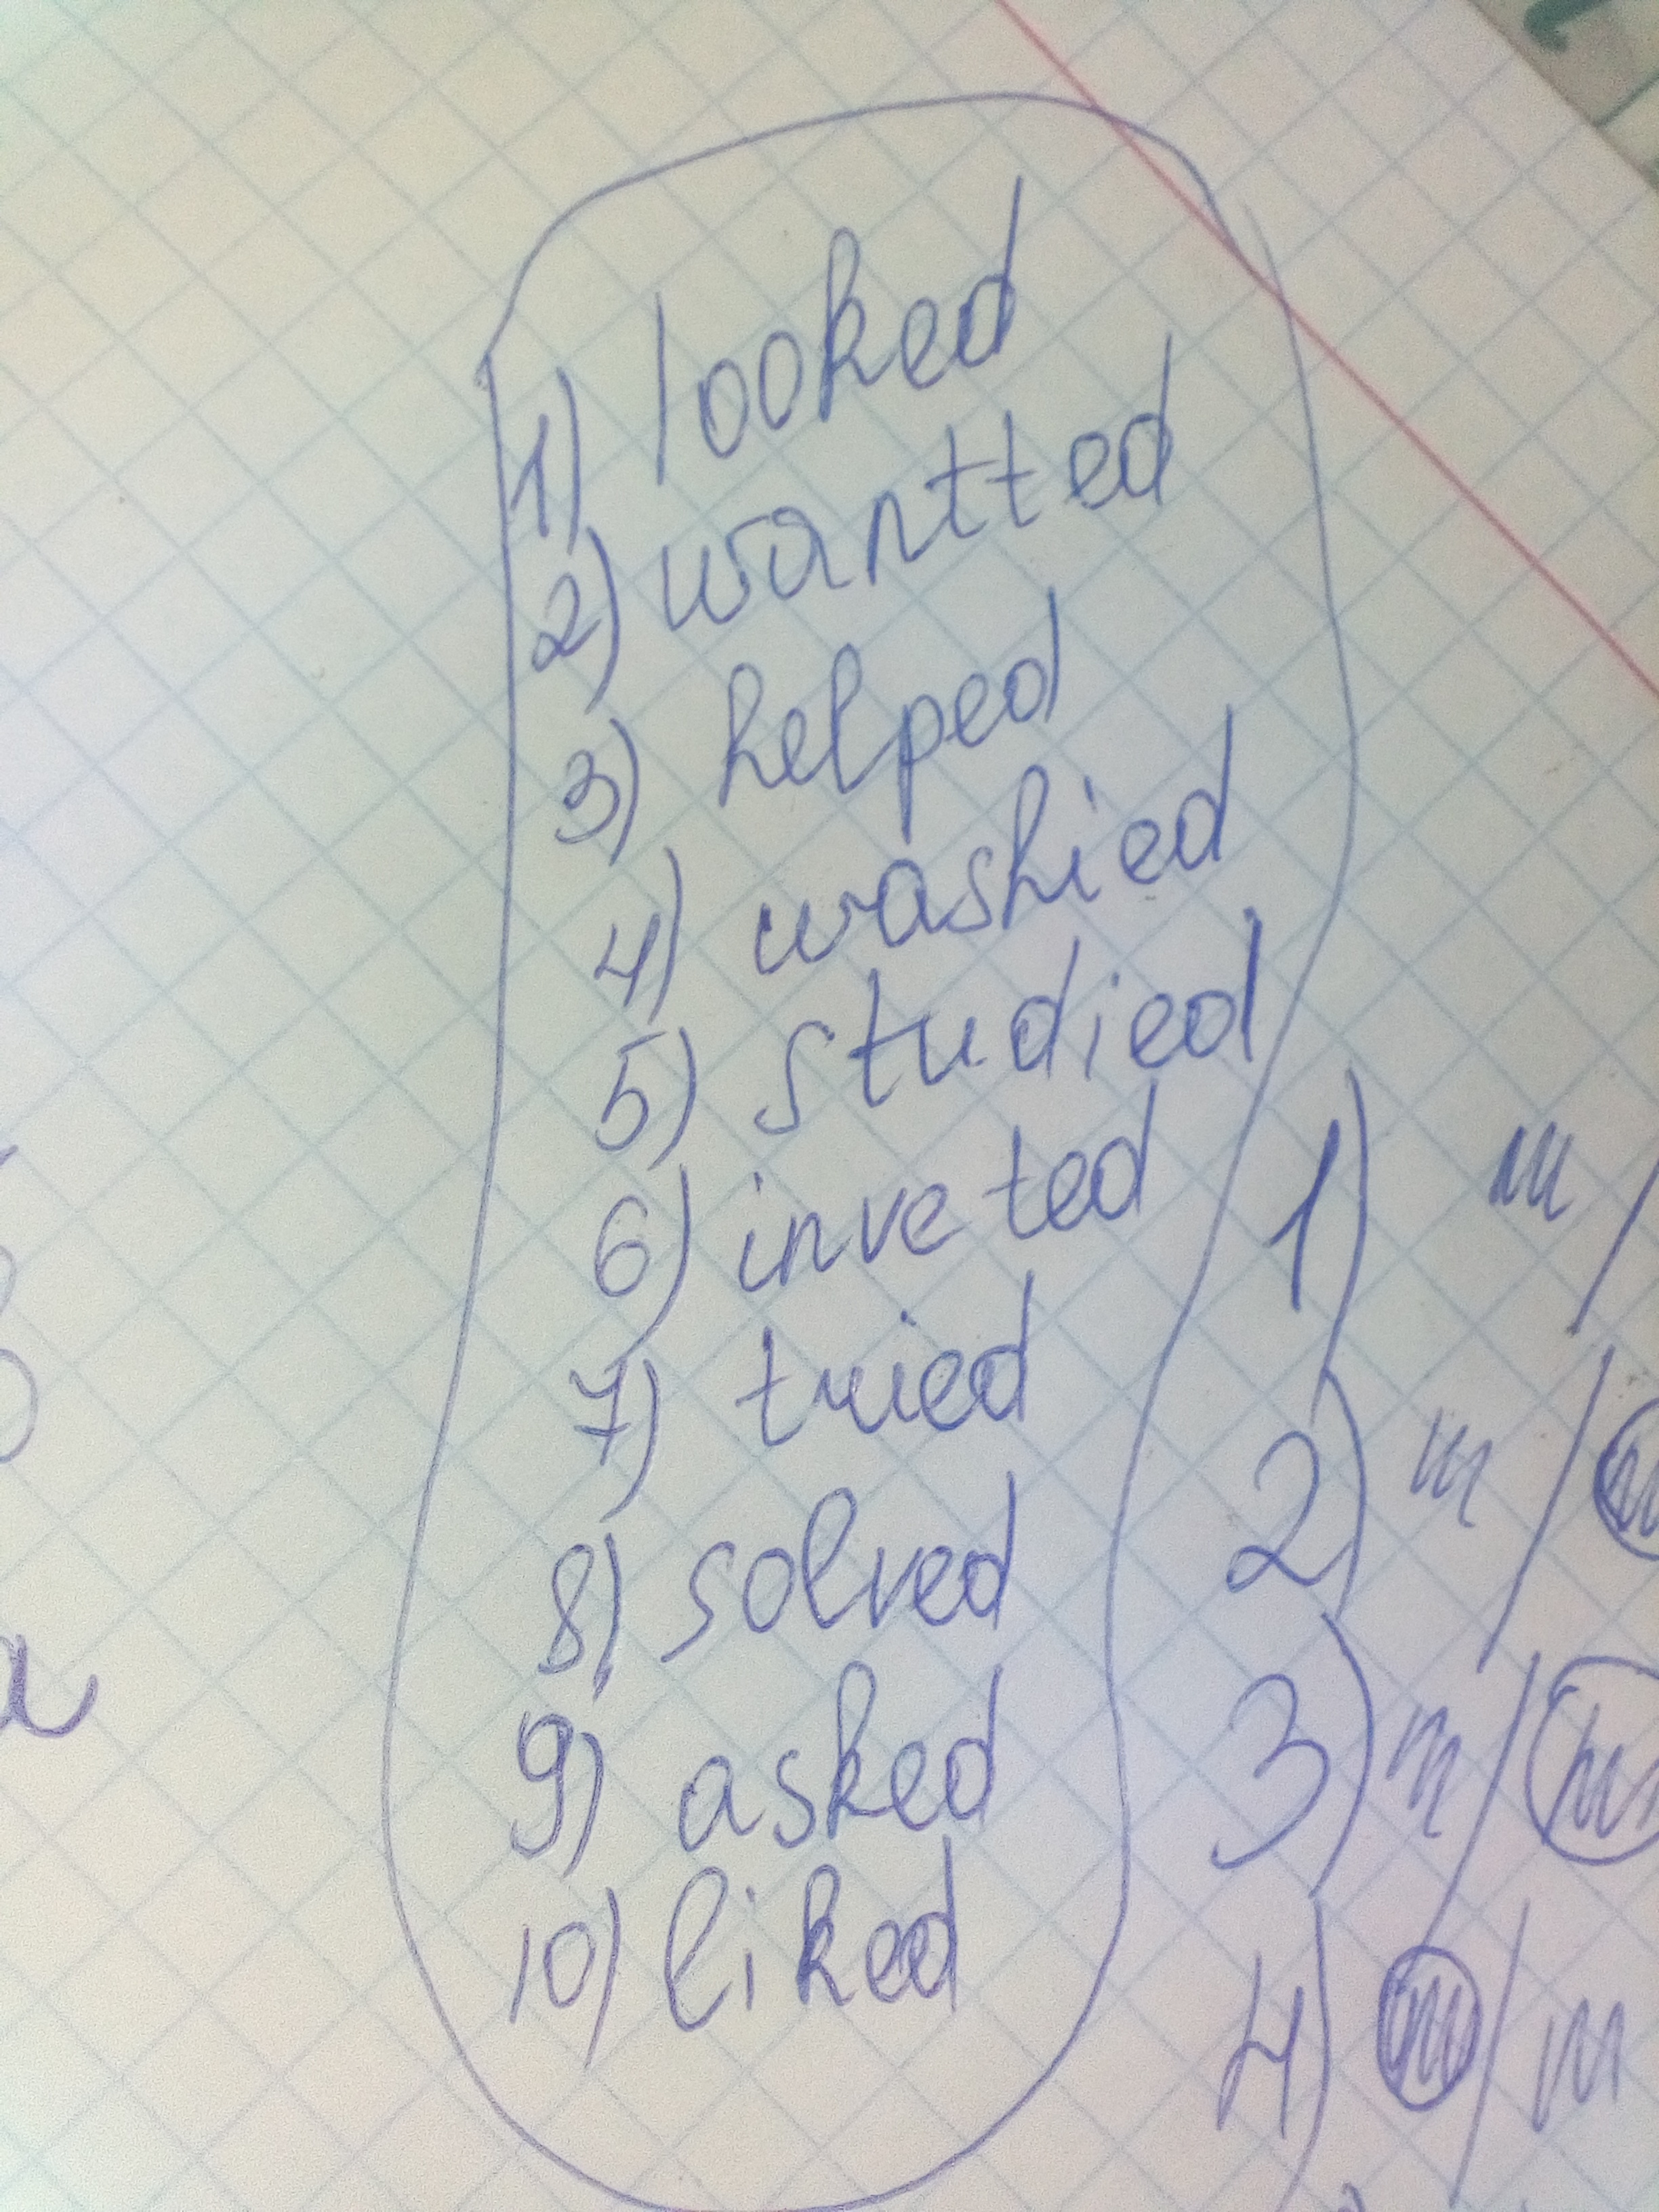 1) looked
2) wantted
3) helped
4) washied
5) studied
6) inveted
7) tried
8) solved
9) asked
10) liked
1) m /
2) m /
3) m /
4) m / m